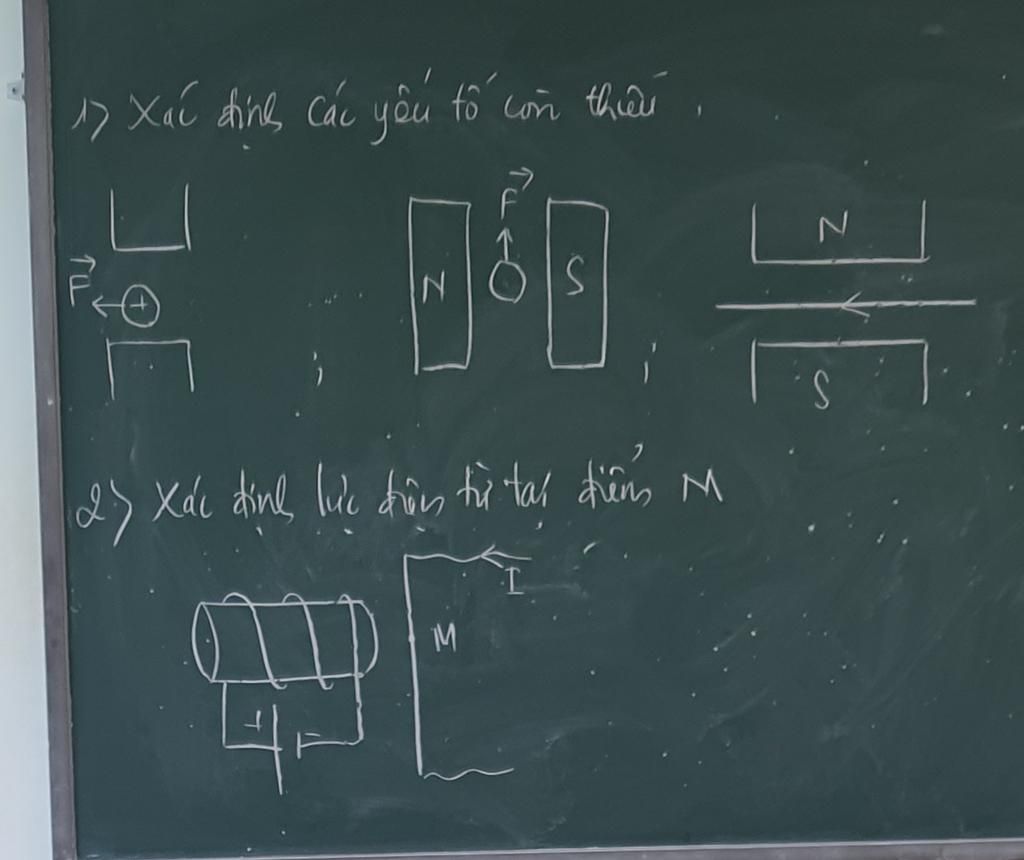 1) Xác định các yếu tố còn thiếu.
F
+
N
F
S
N
S
2) Xác định lực điện từ tại điểm M
I
M
+
-